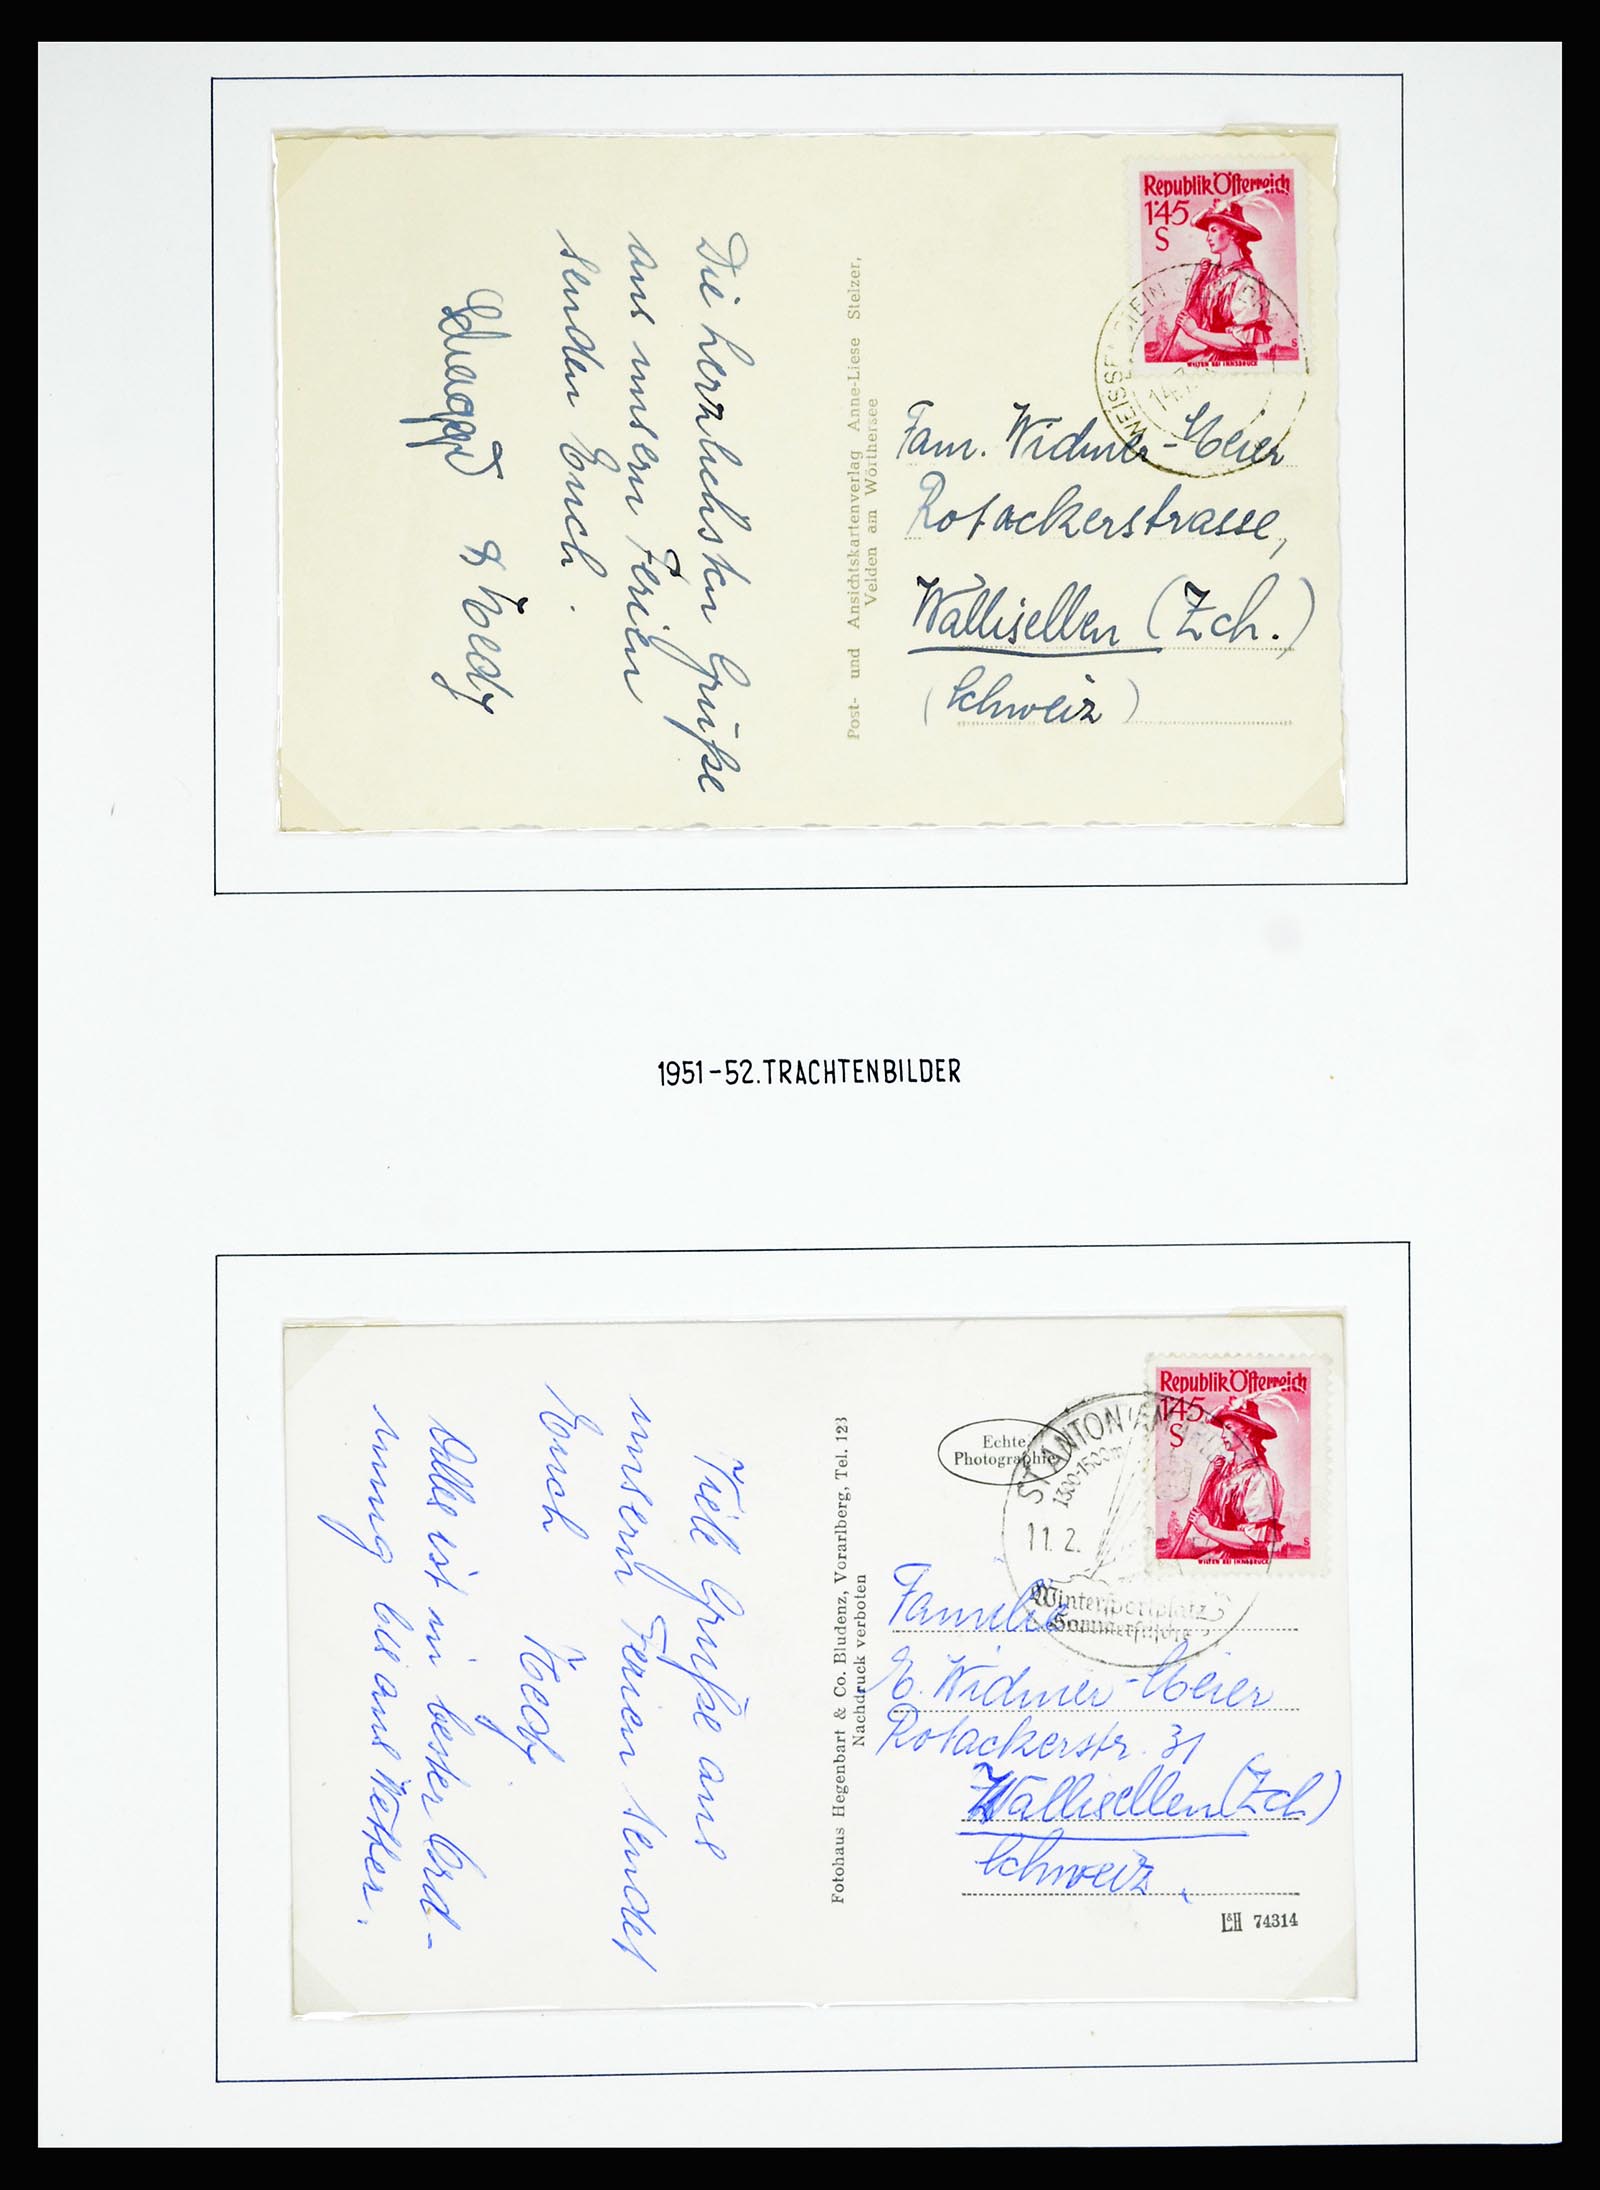 Republik Österreich
1·45
S
WILTEN BEI INNSBRUCK
WEISSENSTEIN
14.
Die herzlichsten Grüße
aus unsern Ferien
senden Euch.
& Hedy
Post- und Ansichtskartenverlag Anne-Liese Stelzer,
Velden am Wörthersee
Fam. Widmer-Meier
Rotackerstrasse,
Wallisellen (Zch.)
(Schweiz)
1951-52.TRACHTENBILDER
Republik Österreich
1·45
S
WILTEN BEI INNSBRUCK
ST ANTON AM
1300-1500m
11. 2.
Wintersportplatz
Sommerfrische
Echte
Photographie
Viele Grüße aus
unsern Ferien sendet
Euch
Hedy
Alles ist in bester Ord-
nung bis aus Wetter.
Fotohaus Hegenbart & Co. Bludenz, Vorarlberg, Tel. 123
Nachdruck verboten
Familie
E. Widmer-Meier
Rotackerstr. 31
Wallisellen (Zch)
Schweiz.
L&H 74314